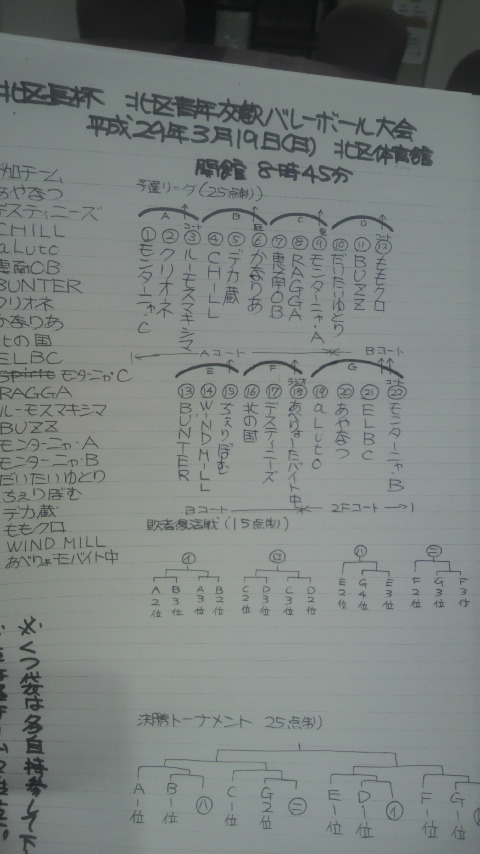 北区長杯 北区青年交歓バレーボール大会
平成24年3月19日(月) 北区体育館
開館 8時45分
参加チーム
あやなつ
デスティニーズ
CHILL
aLutc
恵南OB
BUNTER
クリオネ
かなりあ
北の国
ELBC
モンターニャ・C
RAGGA
ルーモスマキシマ
BUZZ
モンターニャ・A
モンターニャ・B
だいたいゆとり
ちぇりぼむ
デカ蔵
ももクロ
WIND MILL
あべりょーモバイト中
予選リーグ(25点制)
A B C D
① モンターニャ・C
② クリオネ
③ ルーモスマキシマ
④ CHILL
⑤ デカ蔵
⑥ かなりあ
⑦ 恵南OB
⑧ RAGGA
⑨ モンターニャ・A
⑩ だいたいゆとり
⑪ BUZZ
⑫ ももクロ
Aコート Bコート
E F G
⑬ BUNTER
⑭ WINDMILL
⑮ ちぇりぼむ
⑯ 北の国
⑰ デスティニーズ
⑱ あべりょーモバイト中
⑲ aLutc
⑳ あやなつ
㉑ ELBC
㉒ モンターニャ・B
Bコート 2Fコート
敗者復活戦(15点制)
イ ロ ハ ニ
A2位 B3位 A3位 B2位 C2位 D3位 C3位 D2位 E2位 G4位 E3位 F2位 G3位 F3位
決勝トーナメント 25点制)
A一位 B一位 ハ C一位 G2位 ニ E一位 D一位 イ F一位 G一位
※くつ袋は各自持参して下